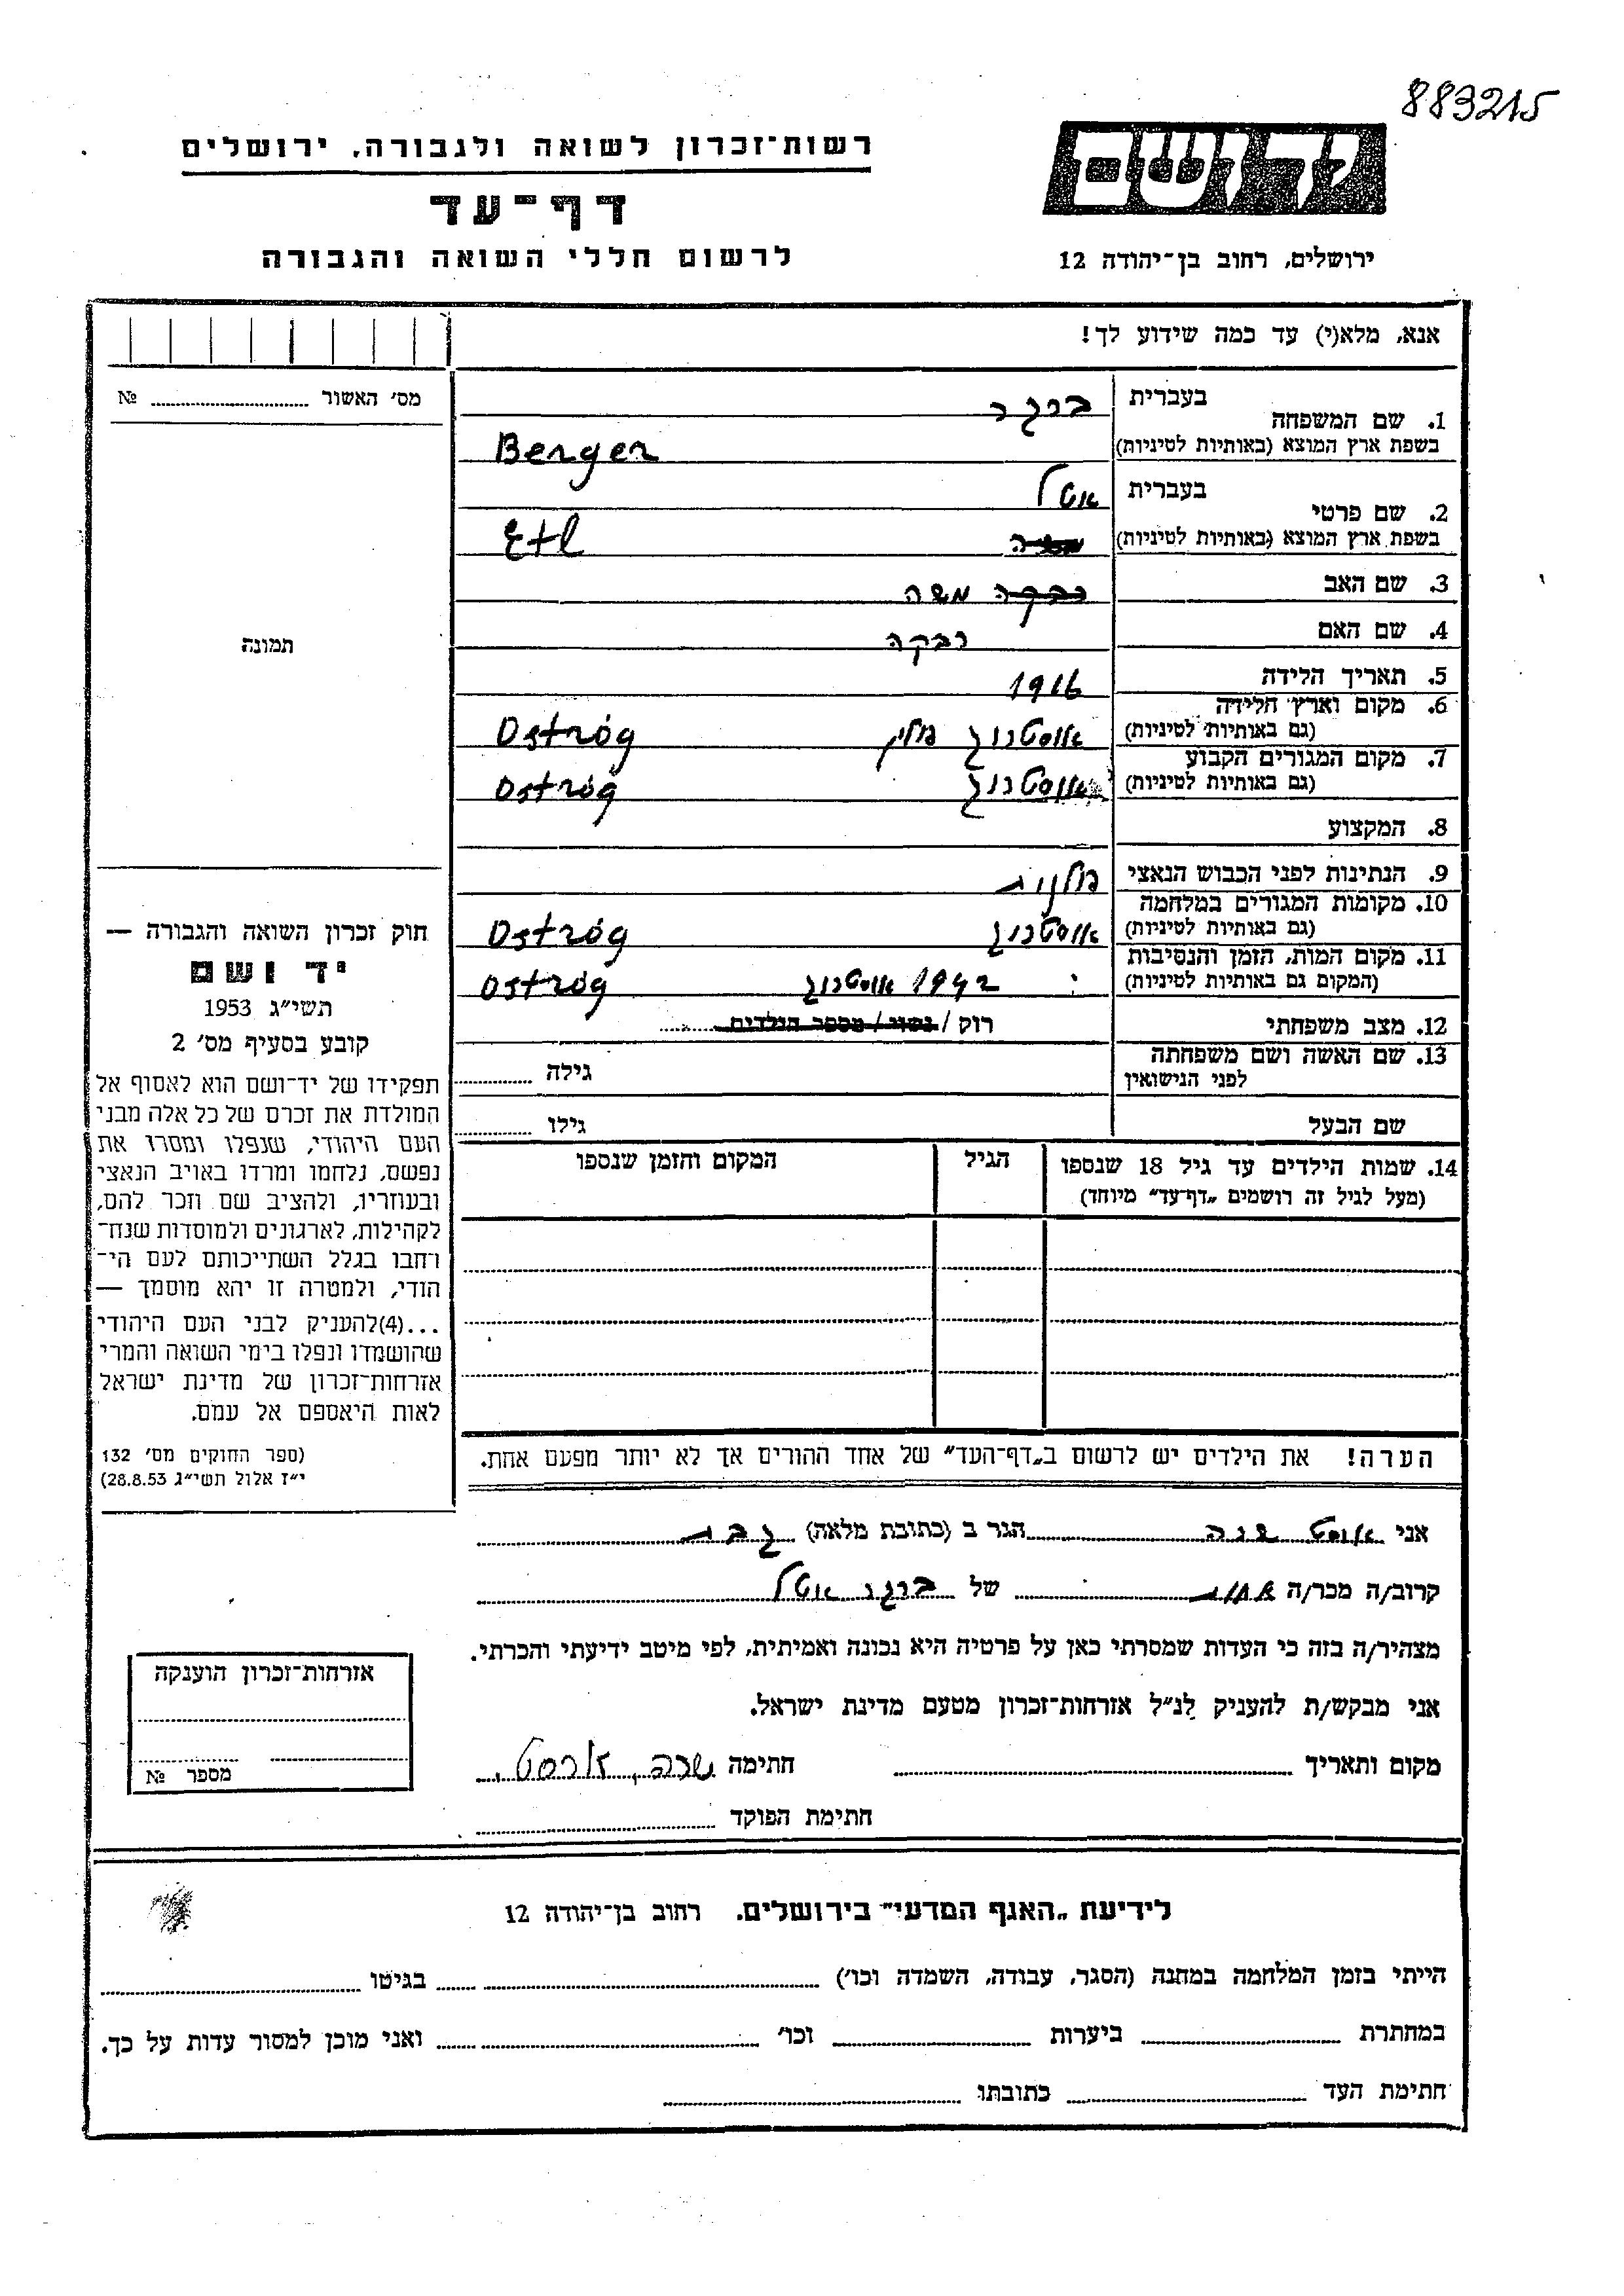 883215
יד ושם
ירושלים, רחוב בן־יהודה 12
רשות־זכרון לשואה ולגבורה, ירושלים
דף־עד
לרשום חללי השואה והגבורה
אנא, מלא(י) עד כמה שידוע לך!
מס׳ האשור № 
תמונה
חוק זכרון השואה והגבורה —
יד ושם
תשי״ג 1953
קובע בסעיף מס׳ 2
תפקידו של יד־ושם הוא לאסוף אל
המולדת את זכרם של כל אלה מבני
העם היהודי, שנפלו ומסרו את
נפשם, נלחמו ומרדו באויב הנאצי
ובעוזריו, ולהציב שם וזכר להם,
לקהילות, לארגונים ולמוסדות שנח־
רחבו בגלל השתייכותם לעם הי־
הודי, ולמטרה זו יהא מוסמך —
...(4) להעניק לבני העם היהודי
שהושמדו ונפלו בימי השואה והמרי
אזרחות־זכרון של מדינת ישראל
לאות היאספם אל עמם.
(ספר החוקים מס׳ 132
י״ז אלול תשי״ג 28.8.53)
1. שם המשפחה בעברית ברגר
בשפת ארץ המוצא (באותיות לטיניות) Berger
2. שם פרטי בעברית אטל
בשפת ארץ המוצא (באותיות לטיניות) Etl
3. שם האב רבקה משה
4. שם האם רבקה
5. תאריך הלידה 1916
6. מקום וארץ הלידה (גם באותיות לטיניות) אוסטרוג פולין Ostróg
7. מקום המגורים הקבוע (גם באותיות לטיניות) אוסטרוג Ostróg
8. המקצוע
9. הנתינות לפני הכבוש הנאצי פולנית
10. מקומות המגורים במלחמה (גם באותיות לטיניות) אוסטרוג Ostróg
11. מקום המות, הזמן והנסיבות (המקום גם באותיות לטיניות) 1942 אוסטרוג Ostróg
12. מצב משפחתי רווק / נשוי / מספר הילדים
13. שם האשה ושם משפחתה לפני הנישואין גילה
שם הבעל גילו
14. שמות הילדים עד גיל 18 שנספו הגיל המקום והזמן שנספו
(מעל לגיל זה רושמים „דף־עד״ מיוחד)
הערה! את הילדים יש לרשום ב„דף־העד״ של אחד ההורים אך לא יותר מפעם אחת.
אני אוסט שרה הגר ב (כתובת מלאה) גבת
קרוב/ה מכר/ה אחות של ברגר אטל
מצהיר/ה בזה כי העדות שמסרתי כאן על פרטיה היא נכונה ואמיתית, לפי מיטב ידיעתי והכרתי.
אני מבקש/ת להעניק לנ״ל אזרחות־זכרון מטעם מדינת ישראל.
מקום ותאריך חתימה שרה אוסט
חתימת הפוקד
אזרחות־זכרון הוענקה
מספר №
לידיעת „האגף המדעי״ בירושלים. רחוב בן־יהודה 12
הייתי בזמן המלחמה במחנה (הסגר, עבודה, השמדה וכו׳) בגיטו
במחתרת ביערות וכו׳ ואני מוכן למסור עדות על כך.
חתימת העד כתובתו